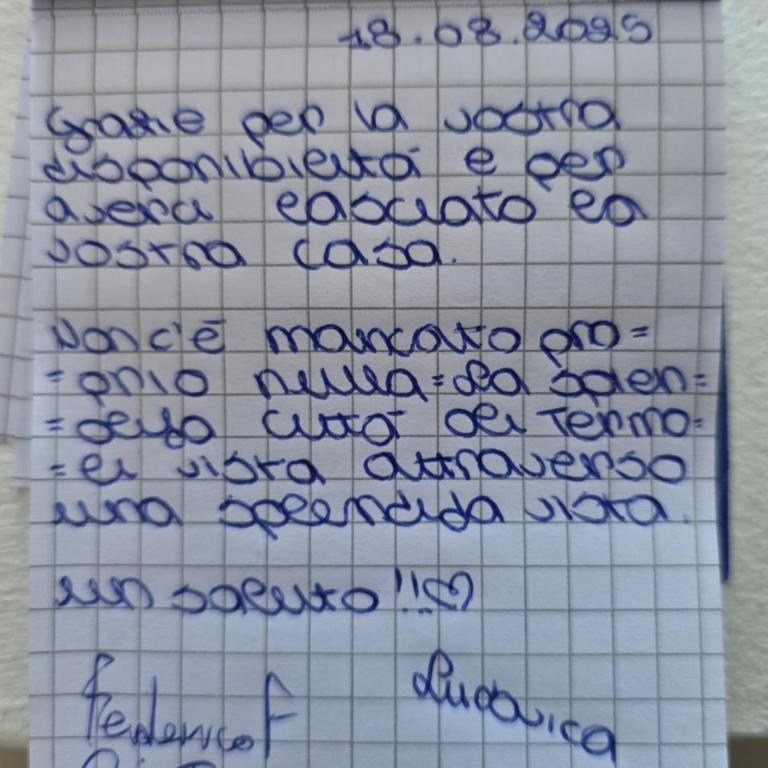 18.08.2025
Grazie per la vostra
disponibilità e per
averci lasciato la
vostra casa.
Non c'è mancato pro=
=prio nulla = la splen=
=dida città di Termo=
=li vista attraverso
una splendida vista.
un saluto!!♡
Federico F
Ludovica